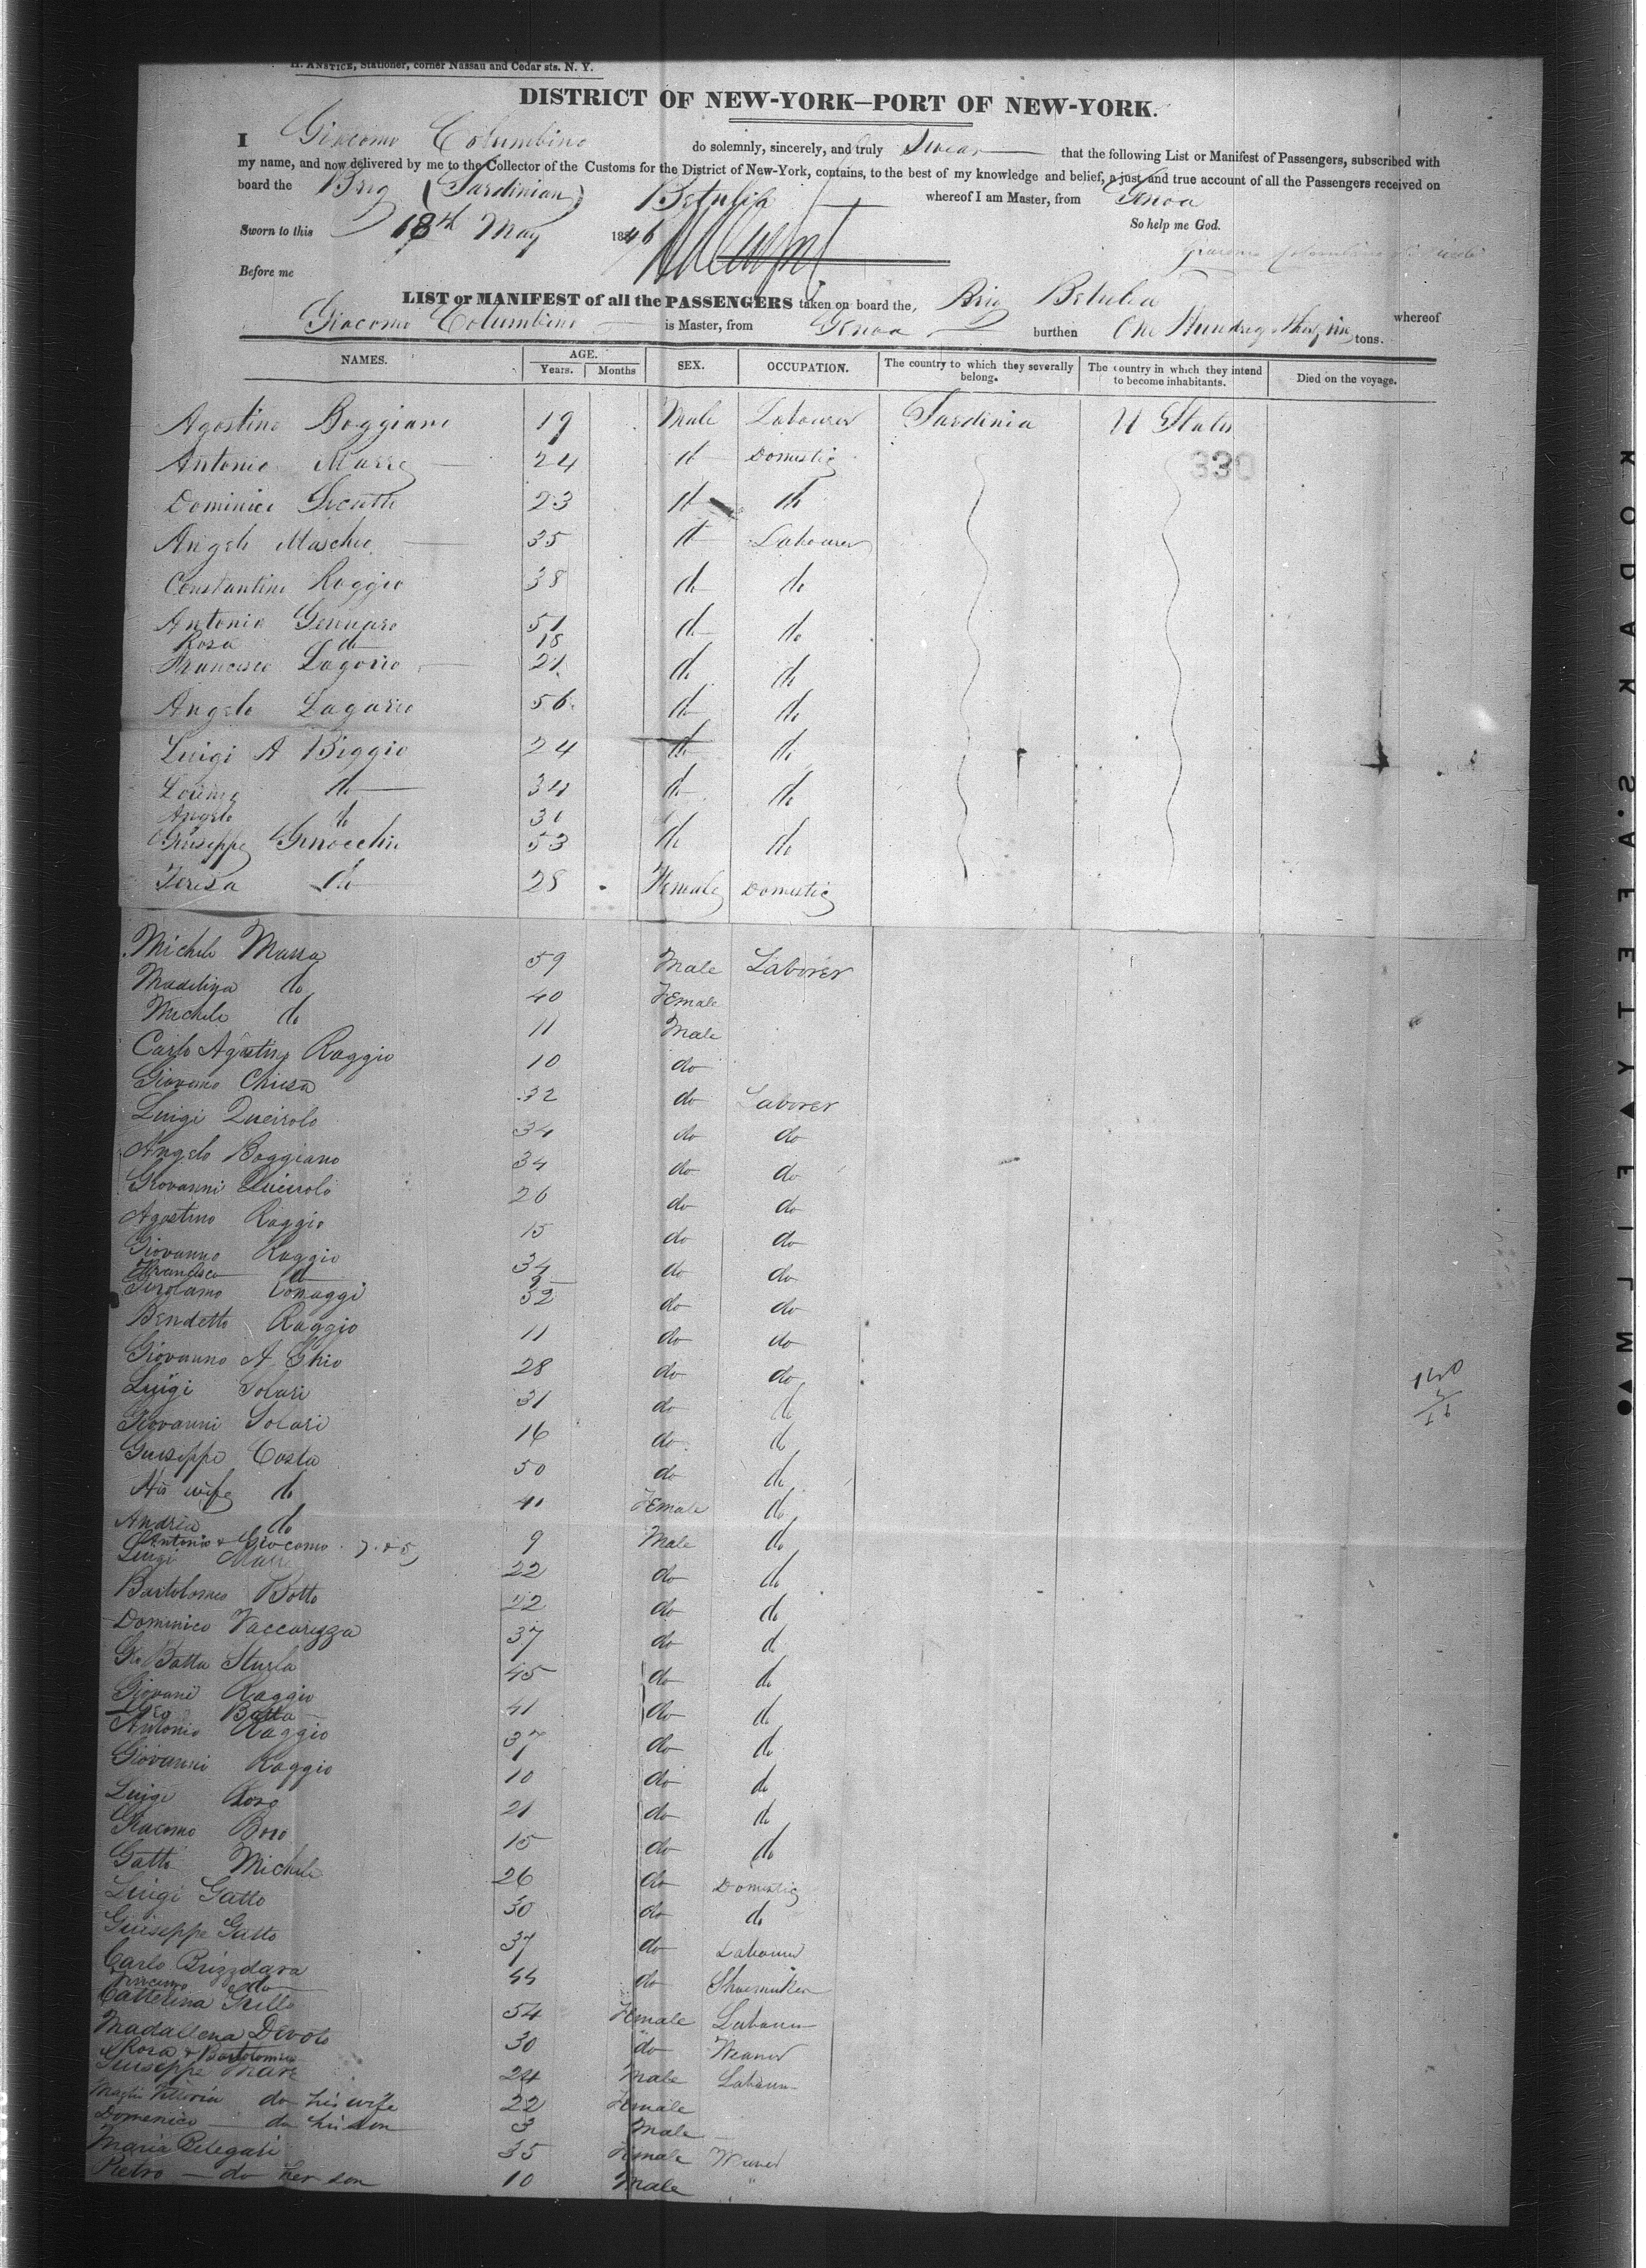 H. ANSTICE, Stationer, corner Nassau and Cedar sts. N. Y.
DISTRICT OF NEW-YORK—PORT OF NEW-YORK.
I Giacomo Columbino do solemnly, sincerely, and truly Swear that the following List or Manifest of Passengers, subscribed with
my name, and now delivered by me to the Collector of the Customs for the District of New-York, contains, to the best of my knowledge and belief, a just and true account of all the Passengers received on
board the Brig (Sardinian) Betulia whereof I am Master, from Genoa
Sworn to this 18th May 1846 So help me God.
Before me
LIST or MANIFEST of all the PASSENGERS taken on board the, Brig Betulia whereof
Giacomo Columbino is Master, from Genoa burthen One Hundred tons.
NAMES. AGE. Years. Months SEX. OCCUPATION. The country to which they severally belong. The country in which they intend to become inhabitants. Died on the voyage.
Agostino Boggiano 19 Male Labourer Sardinia U States
Antonio Marre 24 do Domestic 330
Dominico 23 do do
Angelo Maschio 35 do Labourer
Constantino Raggio 38 do do
Antonio Gennaro 51 do do
Rosa do 18
Francisco Lagorio 21 do do
Angelo Lagario 56 do do
Luigi A Biggio 24 do do
do 34 do do
Angelo do 31
Giuseppe Ginocchio 53 do do
Teresa do 28 Female Domestic
Michele Massa 59 Male Laborer
Madelina do 40 Female
Michele do 11 Male
Carlo Agostino Raggio 10 do
Giovanno Chiesa 32 do Laborer
Luigi Queirolo 34 do do
Angelo Boggiano 34 do do
Giovanni Queirolo 26 do do
Agostino Raggio 15 do do
Giovanno Raggio 34 do do
Francisco do 9
Girolamo Conaggi 32 do do
Bendetto Raggio 11 do do
Giovanno A Ghio 28 do do
Luigi Solari 31 do do
Giovanni Solari 16 do do
Guiseppe Costa 50 do do
His wife do 41 Female do
Andrea do 9 Male do
Antonio & Giocomo 7 & 5
Luigi Marre 22 do do
Bartolomeo Botto 22 do do
Domenico Vaccarezza 37 do do
Gio Batta Sturla 45 do do
Giovani Raggio 41 do do
Gio Batta
Antonio Raggio 37 do do
Giovanni Raggio 10 do do
Luigi 21 do do
Giacomo Boro 15 do do
Gatto Michele 26 do Domestic
Luigi Gatto 30 do do
Guiseppe Gatto 37 do Labourer
Carlo Brizzolara 44 do Shoemaker
do
Catterina Grillo 54 Female Labourer
Madallena Devoto 30 do Weaver
Rosa & Bartolomeo
Guiseppe Mare 24 Male Labourer
Vittoria do his wife 22 Female
Domenico do his son 3 Male
Maria Pelegari 35 Female Weaver
Pietro do her son 10 Male "